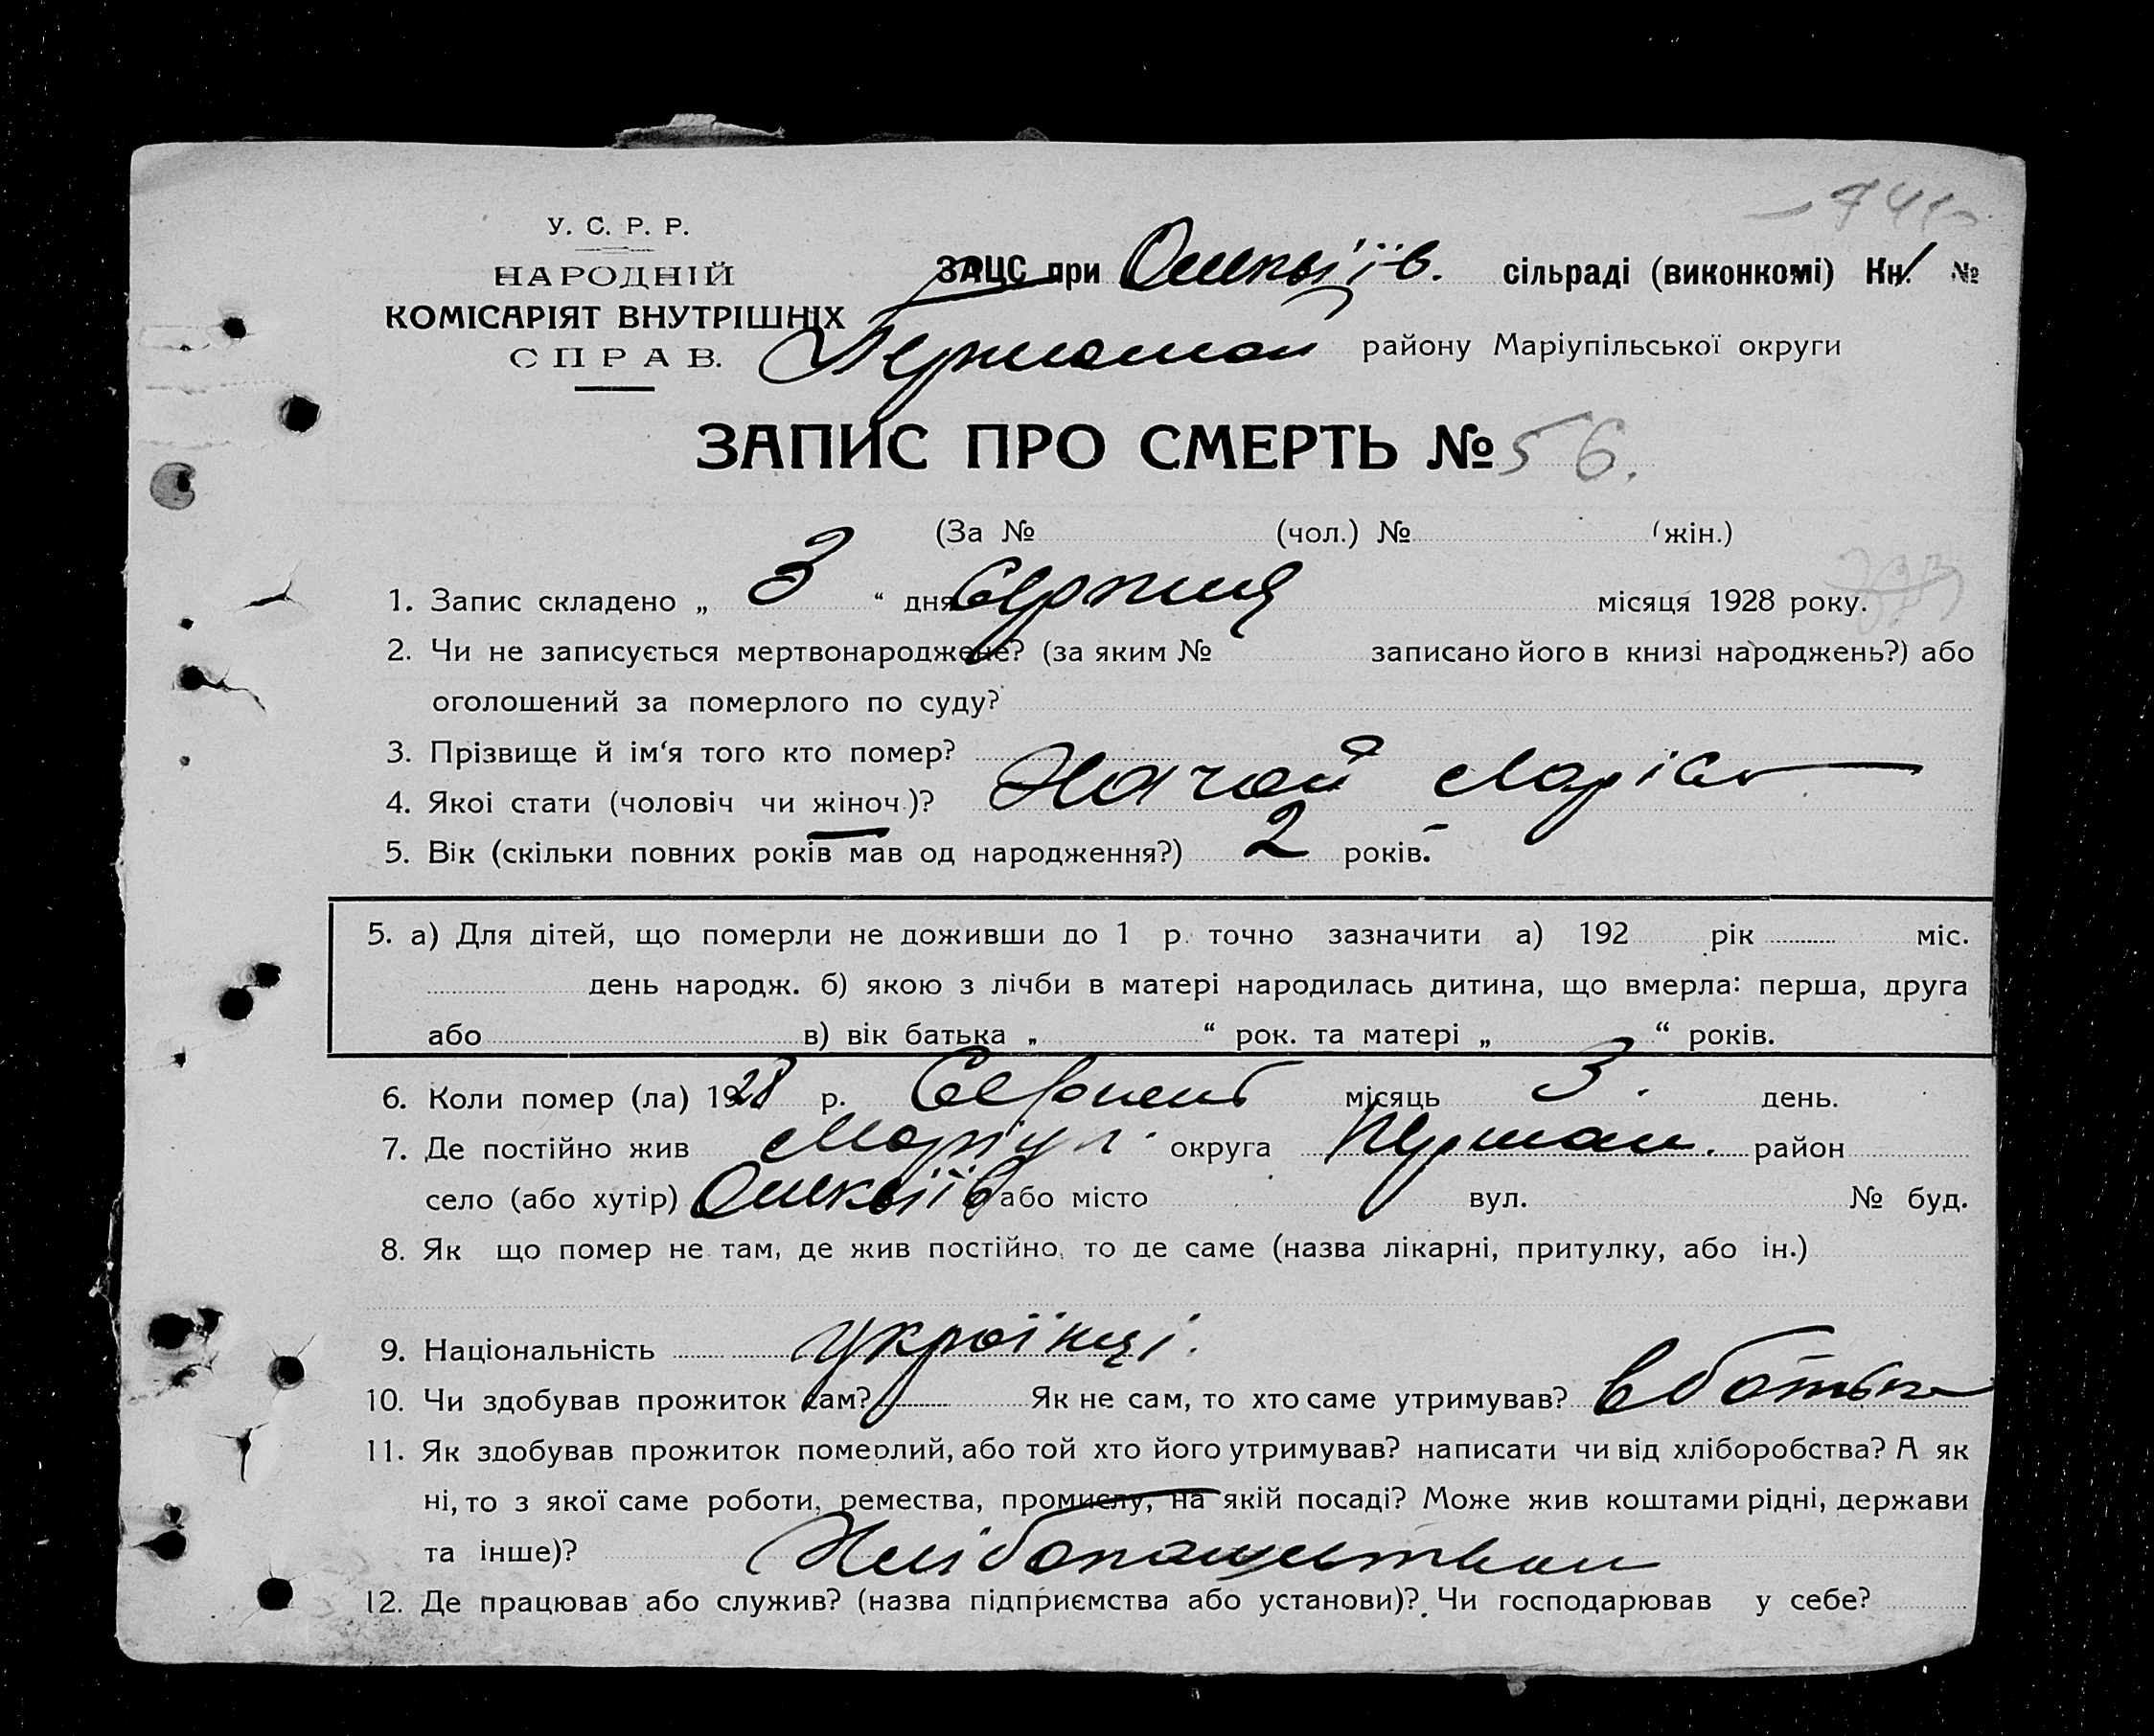 У. С. Р. Р.
НАРОДНІЙ
КОМІСАРІЯТ ВНУТРІШНІХ
СПРАВ.
ЗАЦС при сільраді (виконкомі) Кн. №
району Маріупільської округи
ЗАПИС ПРО СМЕРТЬ № 56.
(За № (чол.) № (жін.)
1. Запис складено „ 3 “ дня Серпня місяця 1928 року.
2. Чи не записується мертвонароджене? (за яким № записано його в книзі народжень?) або
оголошений за померлого по суду?
3. Прізвище й ім‘я того кто помер?
4. Якоі стати (чоловіч чи жіноч.)? Марія
5. Вік (скільки повних років мав од народження?) 2 років.
5. а) Для дітей, що померли не доживши до 1 р. точно зазначити а) 192 рік міс.
день народж. б) якою з лічби в матері народилась дитина, що вмерла: перша, друга
або в) вік батька „ “ рок. та матері „ “ років.
6. Коли помер (ла) 1928 р. Серпень місяць 3. день.
7. Де постійно жив Маріуп. округа район
село (або хутір) або місто вул. № буд.
8. Як що помер не там, де жив постійно, то де саме (назва лікарні, притулку, або ін.)
9. Національність Українці.
10. Чи здобував прожиток сам? Як не сам, то хто саме утримував? в батька
11. Як здобував прожиток померлий, або той хто його утримував? написати чи від хліборобства? А як
ні, то з якої саме роботи, ремества, промислу, на якій посаді? Може жив коштами рідні, держави
та інше)?
12. Де працював або служив? (назва підприємства або установи)? Чи господарював у себе?